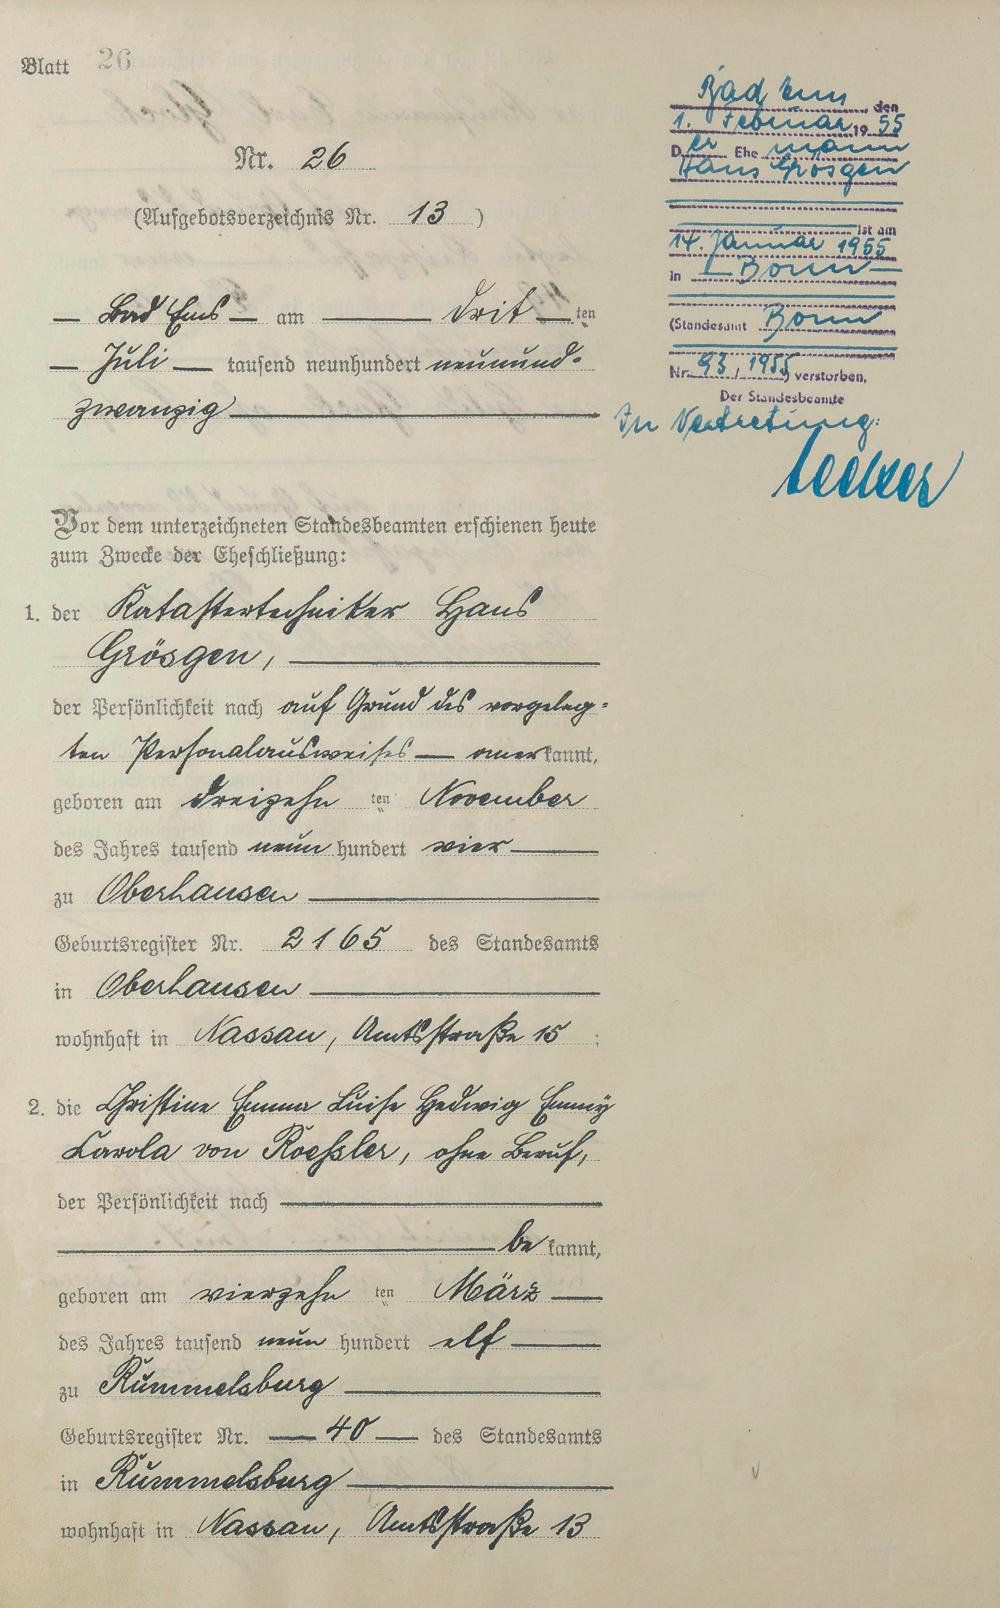 Blatt 26
Nr. 26
(Aufgebotsverzeichnis Nr. 13)
— Bad Ems — am — Drit — ten
— Juli — tausend neunhundert neunund-
zwanzig —
Vor dem unterzeichneten Standesbeamten erschienen heute
zum Zwecke der Eheschließung:
1. der Katastertechniker Hans
Grösgen, —
der Persönlichkeit nach auf Grund des vorgeleg-
ten Personalausweises — anerkannt,
geboren am dreizehn ten November
des Jahres tausend neun hundert vier —
zu Oberhausen —
Geburtsregister Nr. 2165 des Standesamts
in Oberhausen —
wohnhaft in Nassau, Amtsstraße 15 ;
2. die Christine Emma Luise Hedwig Emmy
Carola von Roessler, ohne Beruf,
der Persönlichkeit nach —
— be kannt,
geboren am vierzehn ten März —
des Jahres tausend neun hundert elf —
zu Rummelsburg —
Geburtsregister Nr. — 40 — des Standesamts
in Rummelsburg —
wohnhaft in Nassau, Amtsstraße 13
Bad Ems, den
1. Februar 19 55
Der Ehe mann
Hans Grösgen
ist am
14. Januar 1955
in — Bonn —
(Standesamt Bonn
Nr. 93 / 1955) verstorben.
Der Standesbeamte
In Vertretung: